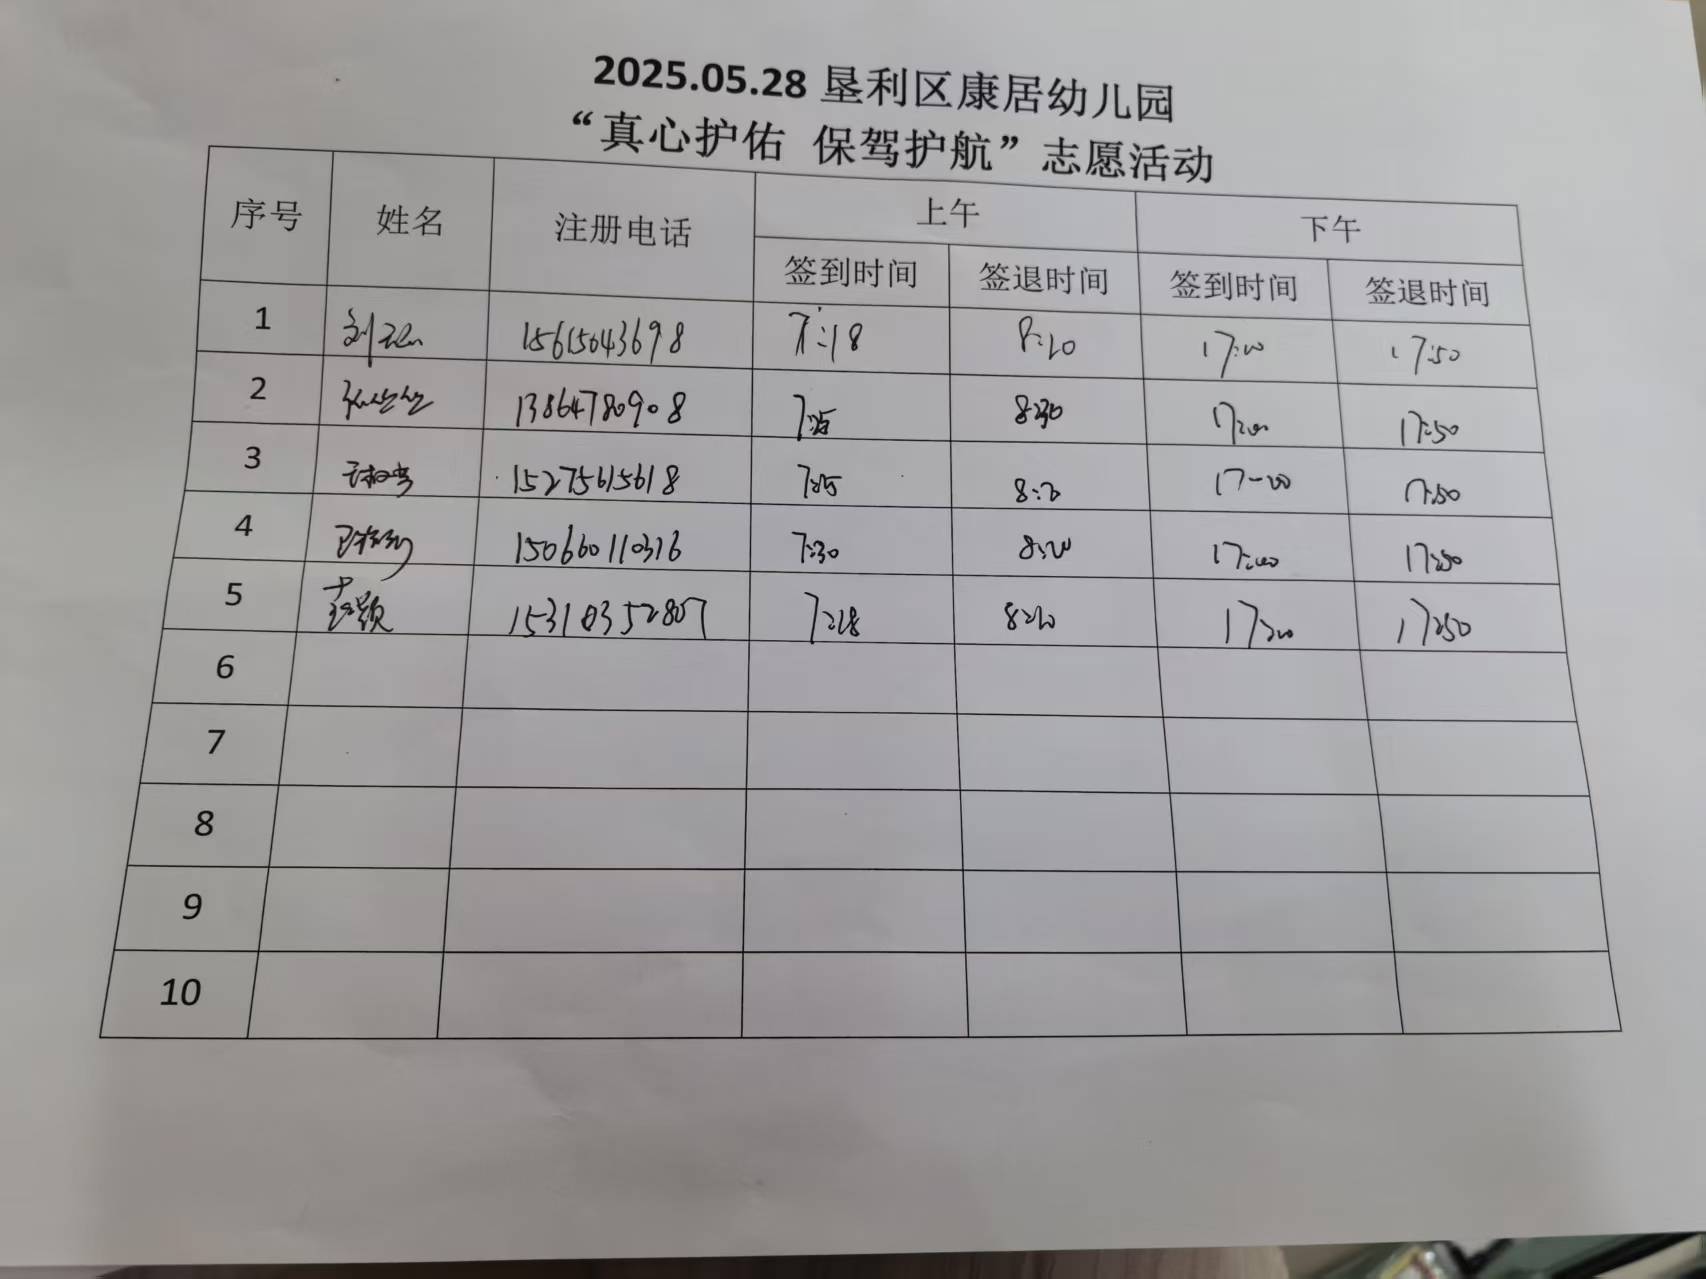 2025.05.28 垦利区康居幼儿园
“真心护佑 保驾护航”志愿活动
序号 姓名 注册电话 上午 下午
签到时间 签退时间 签到时间 签退时间
1 刘 15615043698 7:18 8:20 17:00 17:50
2 13864780908 7:25 8:30 17:00 17:50
3 15275615618 7:25 8:20 17-00 17:50
4 7:30 8:20 17:00 17:50
5 7:28 8:20 17:00 17:50
6
7
8
9
10